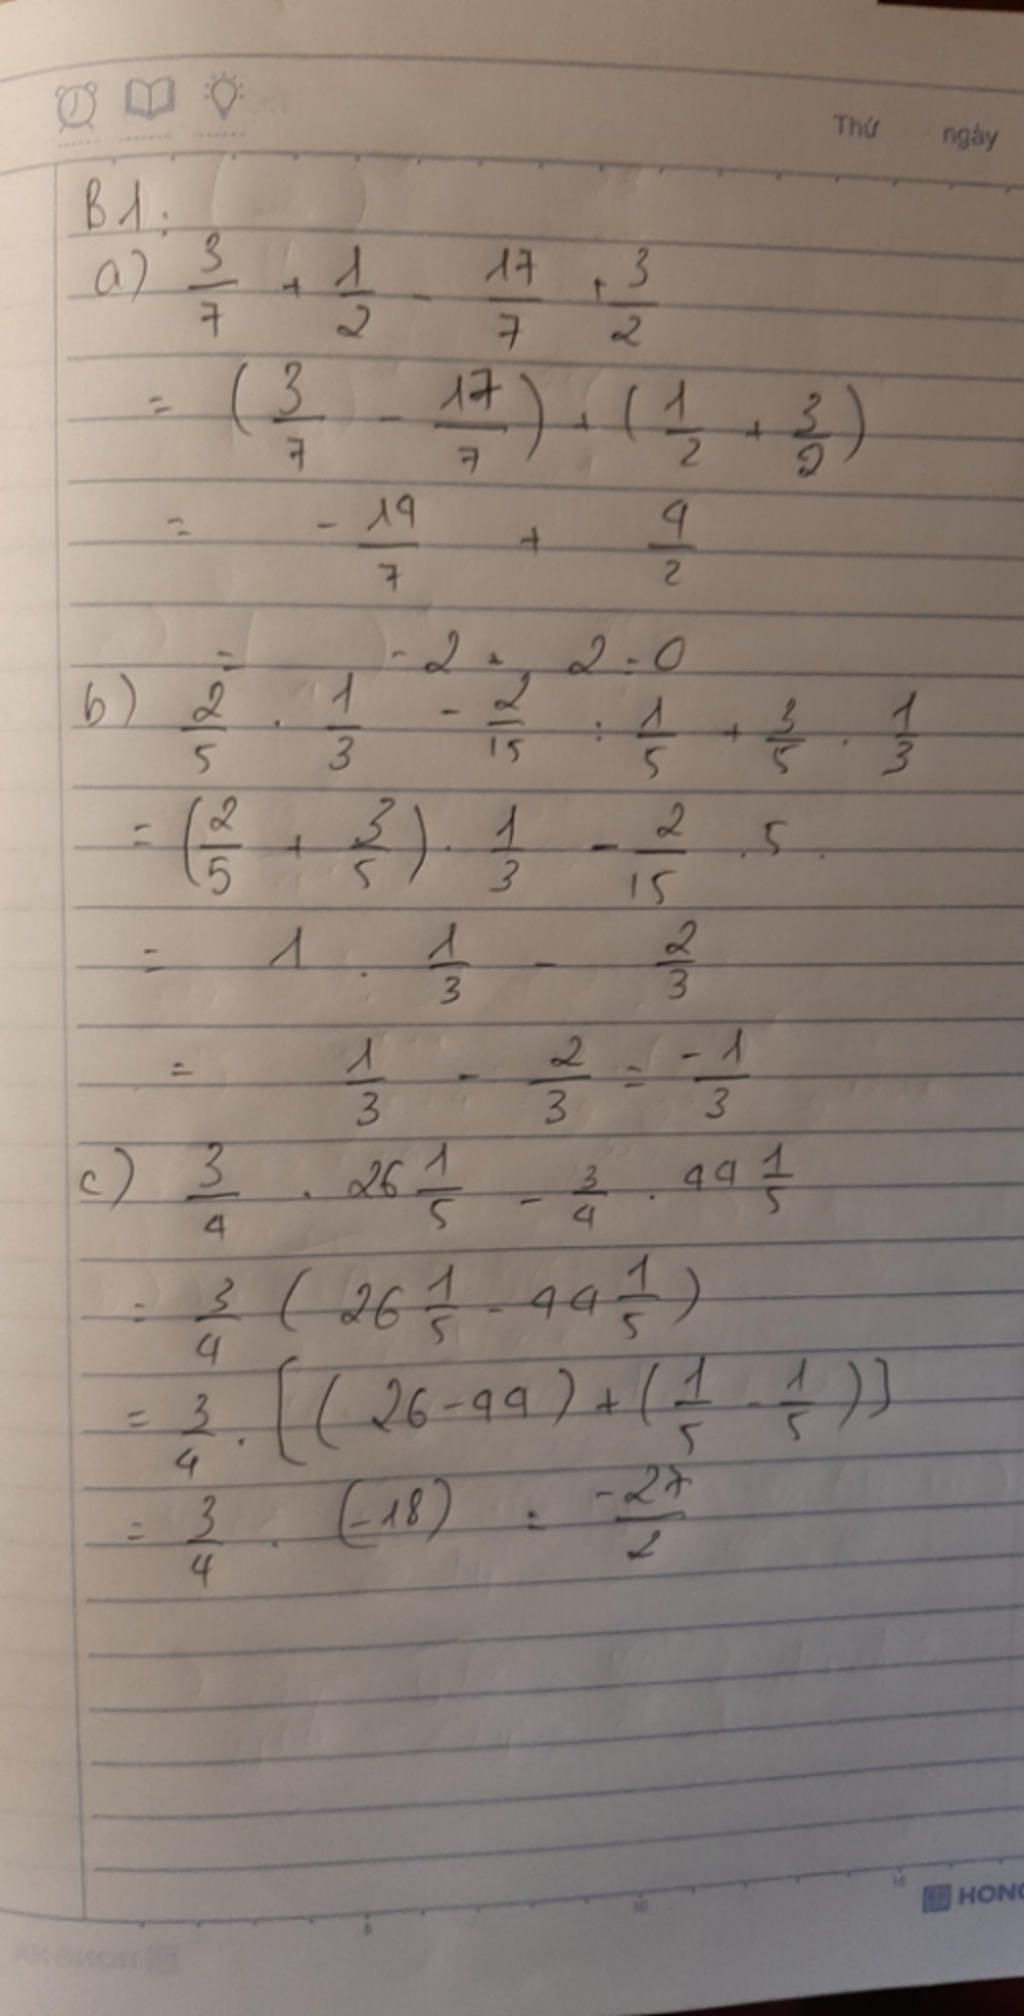 Thứ ngày
B1:
a) 3/7 + 1/2 - 17/7 + 3/2
= (3/7 - 17/7) + (1/2 + 3/2)
= -14/7 + 4/2
= -2 + 2 = 0
b) 2/5 . 1/3 - 2/15 : 1/5 + 3/5 . 1/3
= (2/5 + 3/5) . 1/3 - 2/15 . 5 .
= 1 . 1/3 - 2/3
= 1/3 - 2/3 = -1/3
c) 3/4 . 26 1/5 - 3/4 . 44 1/5
= 3/4 ( 26 1/5 - 44 1/5 )
= 3/4 . [( 26 - 44 ) + ( 1/5 - 1/5 )]
= 3/4 . (-18) = -27/2
5 10 15
HONG